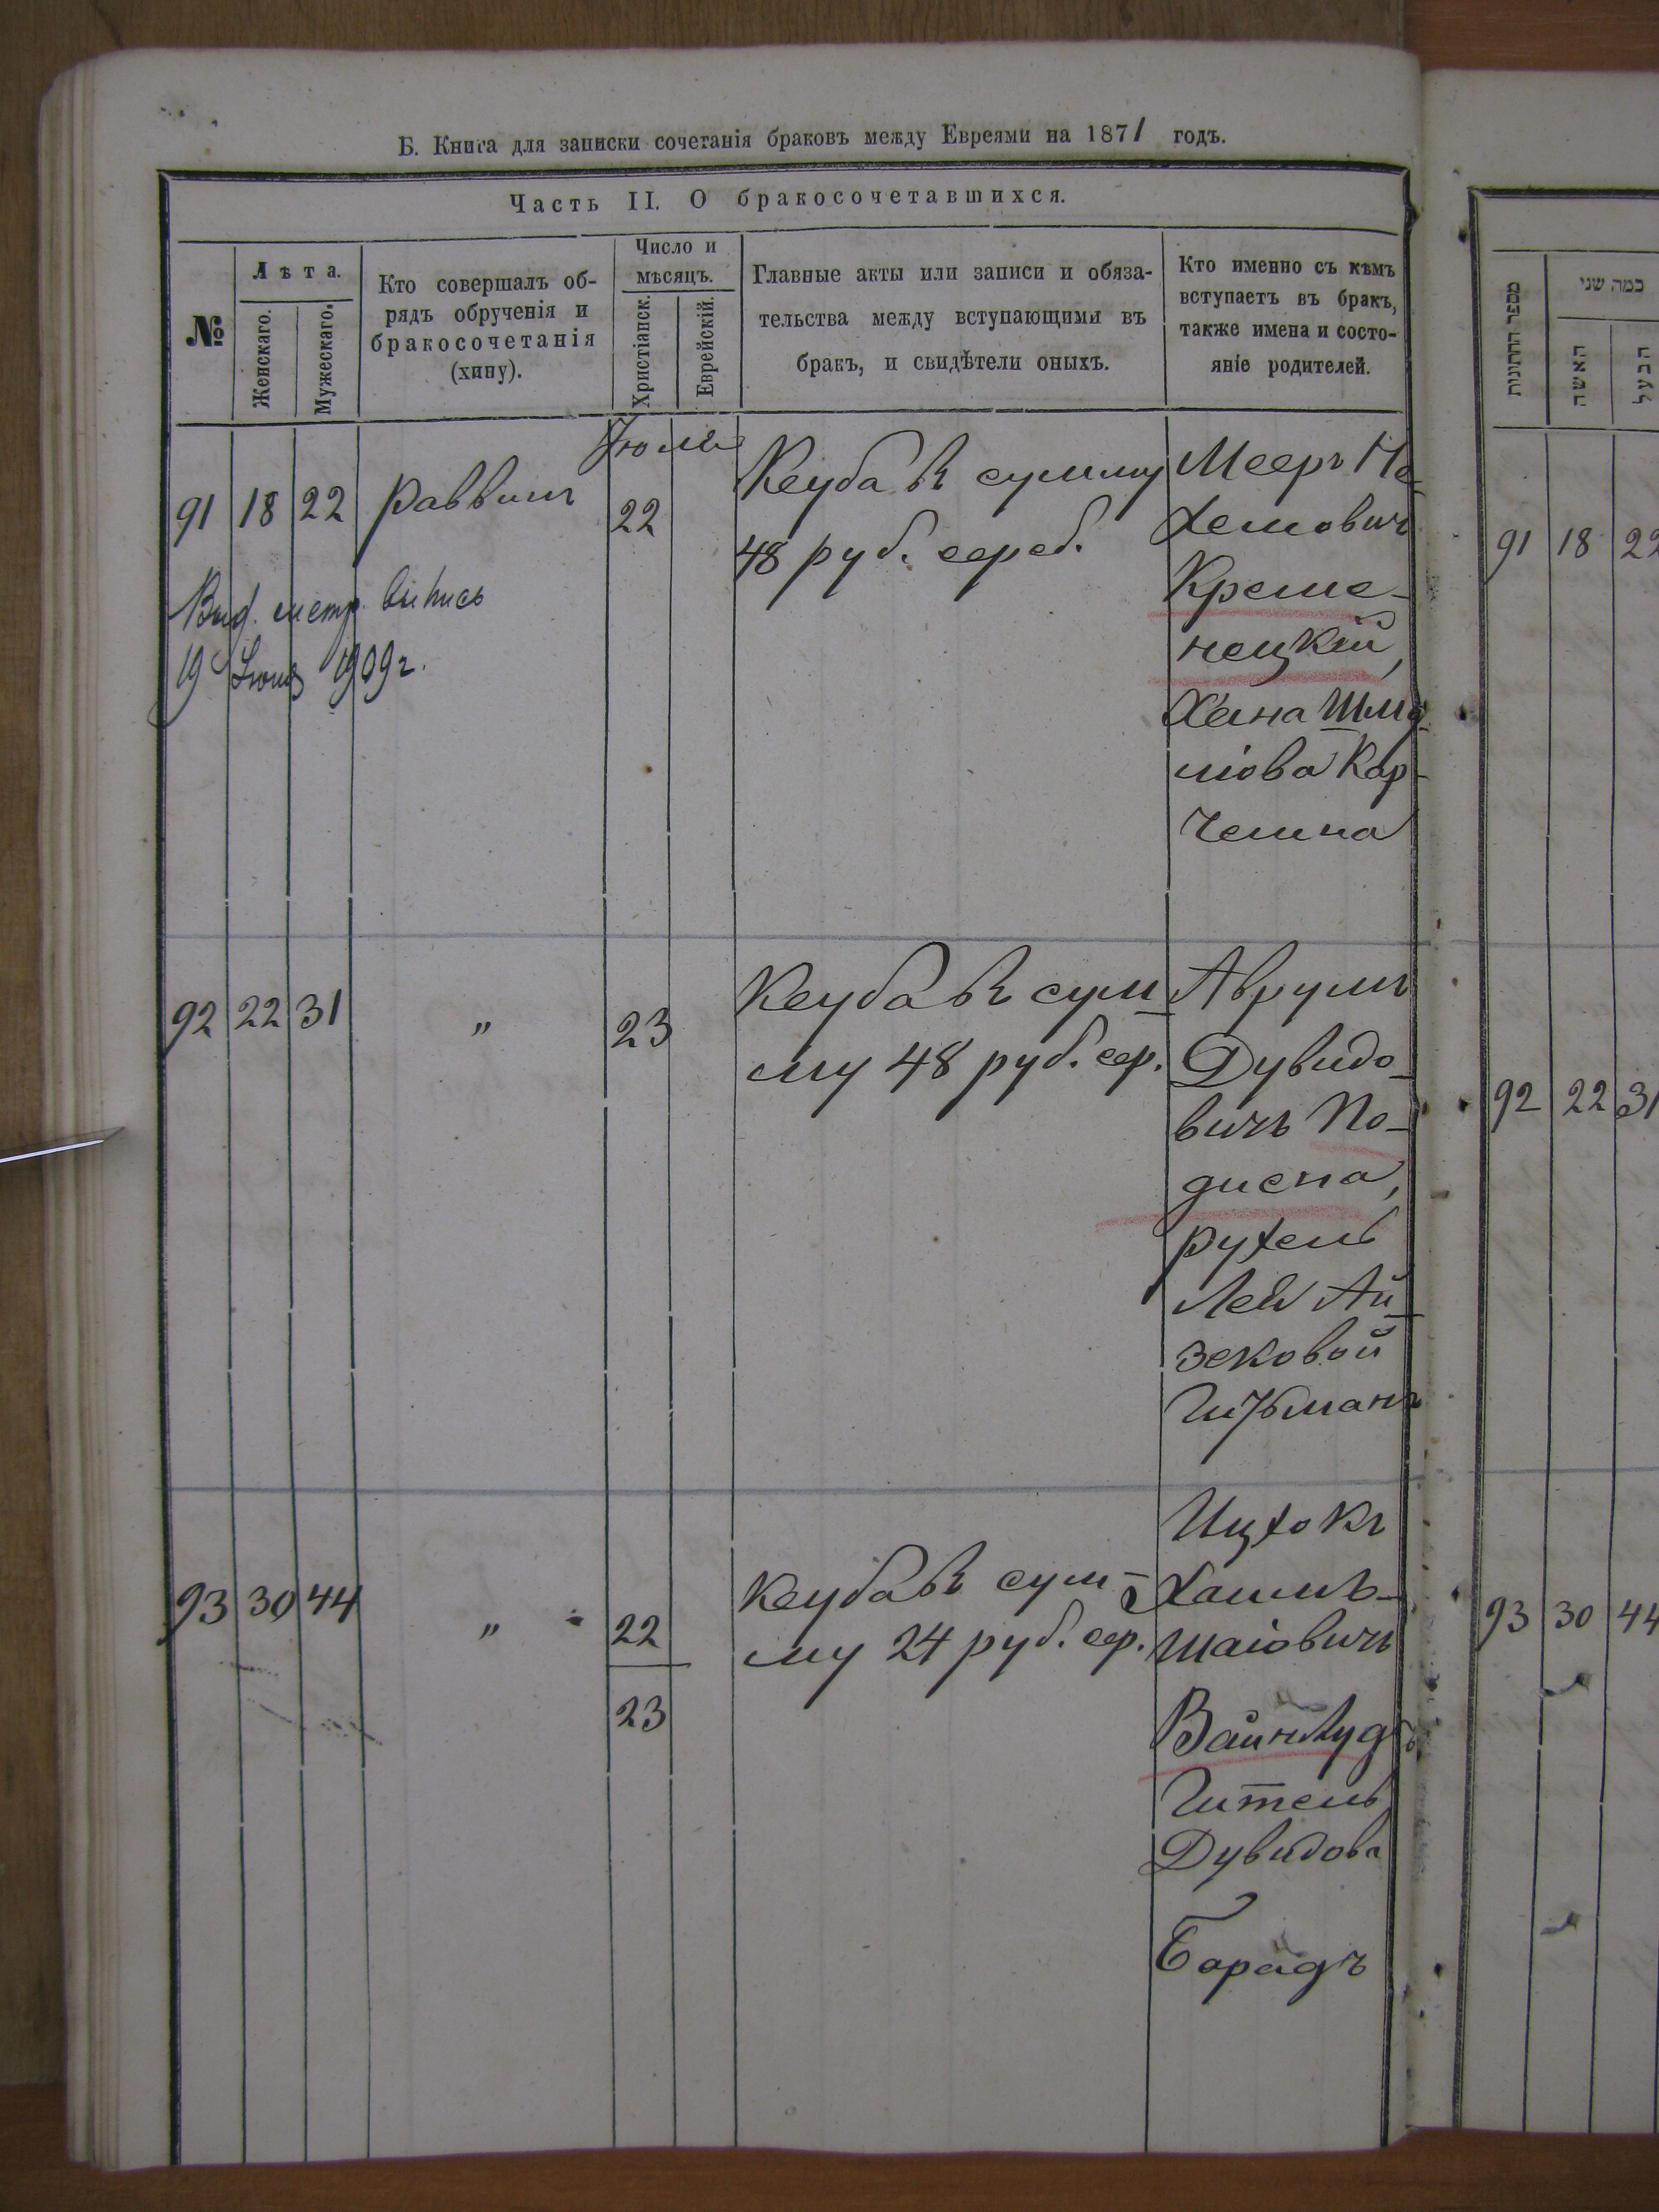 Б. Книга для записки сочетанія браковъ между Евреями на 1871 годъ.
Часть II. О бракосочетавшихся.
№
Лѣта.
Женскаго.
Мужескаго.
Кто совершалъ об-
рядъ обрученія и
бракосочетанія
(хипу).
Число и
мѣсяцъ.
Христіанск.
Еврейскій.
Главные акты или записи и обяза-
тельства между вступающими въ
бракъ, и свидѣтели оныхъ.
Кто именно съ кѣмъ
вступаетъ въ бракъ,
также имена и состо-
яніе родителей.
Іюль
91 18 22 Раввинъ 22
Кеуба въ сумму
48 руб. сереб.
Мееръ Не-
хемовичъ
Креме-
нецкій,
Хана Шму
лова Кар-
Выд. метр. выпись
1909 г.
92 22 31 " 23
Кеуба въ сум-
му 48 руб. сер.
Аврумъ
Дувидо-
вичъ По-
диспа,
Рухель
Лея Ай-
зековой
93 30 44 " 22
23
Кеуба въ сум-
му 24 руб. сер.
Ицхокъ
Хаимъ-
Шаіовичъ
Гитель
Дувидова
Барадъ
מספר החתונות
כמה שני
האשה
הבעל
91 18 22
92 22 31
93 30 44